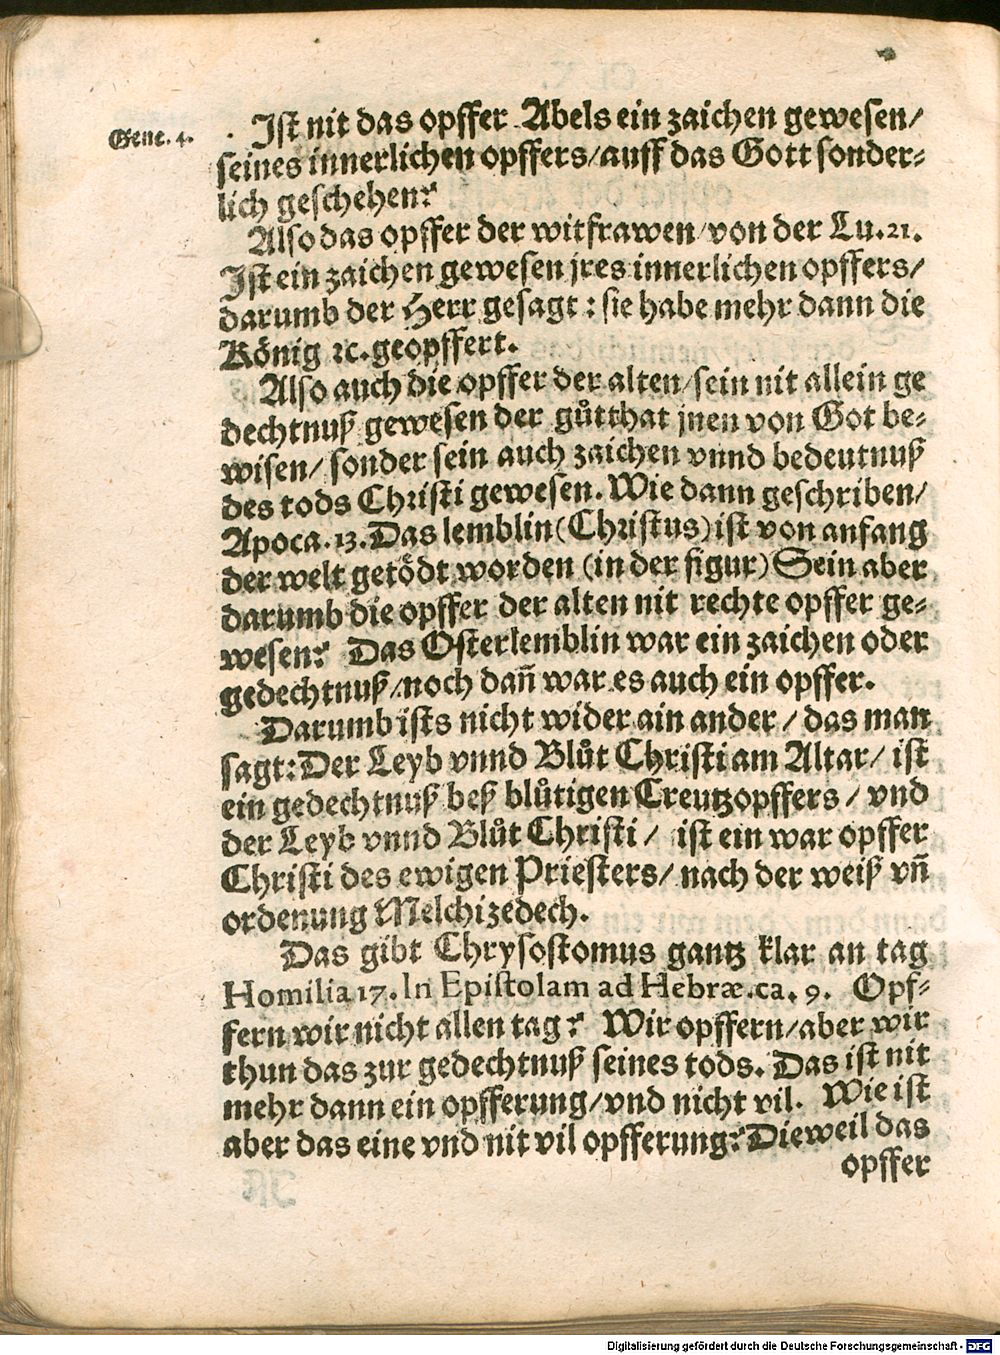 Gene. 4.
Ist nit das opffer Abels ein zaichen gewesen/
seines innerlichen opffers/auff das Gott sonder-
lich geschehen?
Also das opffer der witfrawen/von der Lu.21.
Ist ein zaichen gewesen jres innerlichen opffers/
darumb der Herr gesagt: sie habe mehr dann die
König ꝛc.geopffert.
Also auch die opffer der alten/sein nit allein ge
dechtnuß gewesen der gůtthat jnen von Got be-
wisen/ sonder sein auch zaichen vnnd bedeutnuß
des tods Christi gewesen. Wie dann geschriben/
Apoca.13. Das lemblin(Christus)ist von anfang
der welt getödt worden (in der figur) Sein aber
darumb die opffer der alten nit rechte opffer ge-
wesen? Das Osterlemblin war ein zaichen oder
gedechtnuß/noch dañ war es auch ein opffer.
Darumb ists nicht wider ain ander/ das man
sagt: Der Leyb vnnd Blůt Christi am Altar/ ist
ein gedechtnuß deß blůtigen Creutzopffers/ vnd
der Leyb vnnd Blůt Christi/ ist ein war opffer
Christi des ewigen Priesters/ nach der weiß vñ
ordenung Melchizedech.
Das gibt Chrysostomus gantz klar an tag
Homilia 17. In Epistolam ad Hebræ.ca. 9. Opf-
fern wir nicht allen tag? Wir opffern/aber wir
thun das zur gedechtnuß seines tods. Das ist nit
mehr dann ein opfferung/vnd nicht vil. Wie ist
aber das eine vnd nit vil opfferung? Dieweil das
opffer
Digitalisierung gefördert durch die Deutsche Forschungsgemeinschaft - DFG